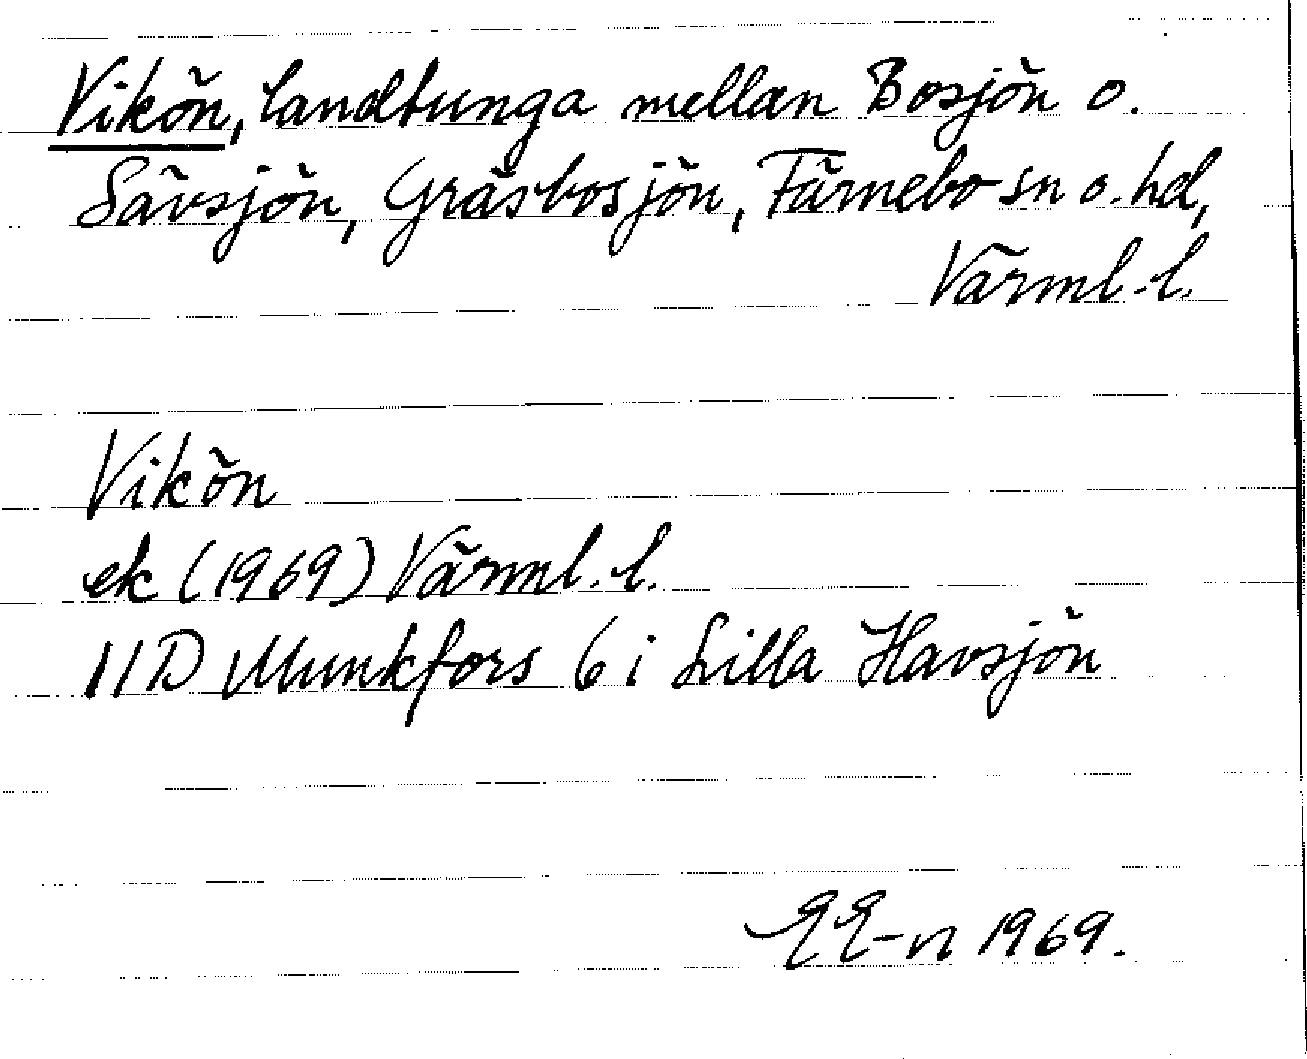 Vikön, landtunga mellan Bosjön o.
Sävsjön, Gräsbosjön, Färnebo sn o. hd,
Värml. l.
Vikön
ek (1969) Värml. l.
11D Munkfors 6 i Lilla Havsjön
EE-n 1969.